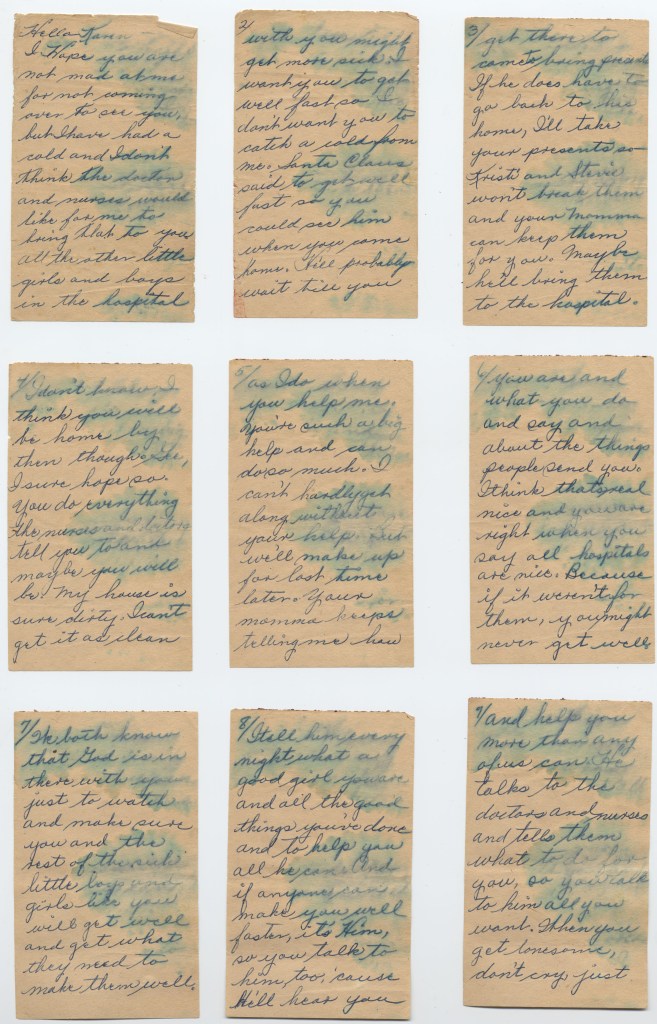 Hello Karen —
I Hope you are
not mad at me
for not coming
over to see you,
but I have had a
cold and I don't
think the doctor
and nurses would
like for me to
bring that to you
all the other little
girls and boys
in the hospital
2/
with you might
get more sick. I
want you to get
well fast so I
don't want you to
catch a cold from
me. Santa Claus
said to get well
fast so you
could see him
when you come
home. He'll probably
wait till you
3/ get there to
come to bring presents
If he does have to
go back to his
home, I'll take
your presents so
Kristi and Stevie
won't break them
and your Momma
can keep them
for you. Maybe
he'll bring them
to the hospital.
4/ I don't know. I
think you will
be home by
then though.
I sure hope so.
You do everything
the nurses and doctors
tell you to and
maybe you will
be. My house is
sure dirty. I can't
get it as clean
5/ as I do when
you help me.
You're such a big
help and can
do so much. I
can't hardly get
along without
your help. But
we'll make up
for lost time
later. Your
momma keeps
telling me how
6/ you are and
what you do
and say and
about the things
people send you.
I think that's real
nice and you are
right when you
say all hospitals
are nice. Because
if it weren't for
them, you might
never get well.
7/ We both know
that God is in
there with you
just to watch
and make sure
you and the
rest of the sick
little boys and
girls like you
will get well
and get what
they need to
make them well.
8/ I tell him every
night what a
good girl you are
and all the good
things you've done
and to help you
all he can. And
if anyone can
make you well
faster, it's Him,
so you talk to
him, too, 'cause
He'll hear you
9/ and help you
more than any
of us can. He
talks to the
doctors and nurses
and tells them
what to do for
you, so you talk
to him all you
want. When you
get lonesome,
don't cry, just